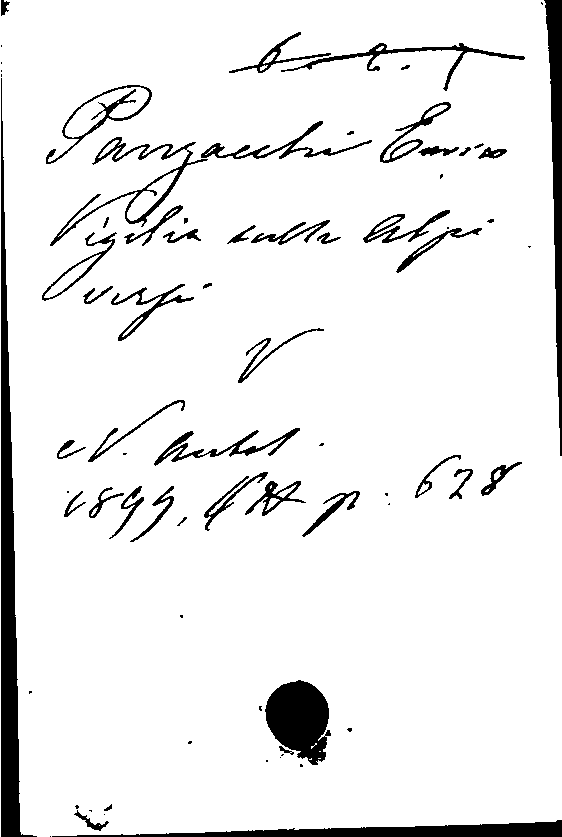 6. 2. 7
Panzacchi Enrico
Vigilia sulle Alpi
versi
V
N. Antol.
1899, p. 628